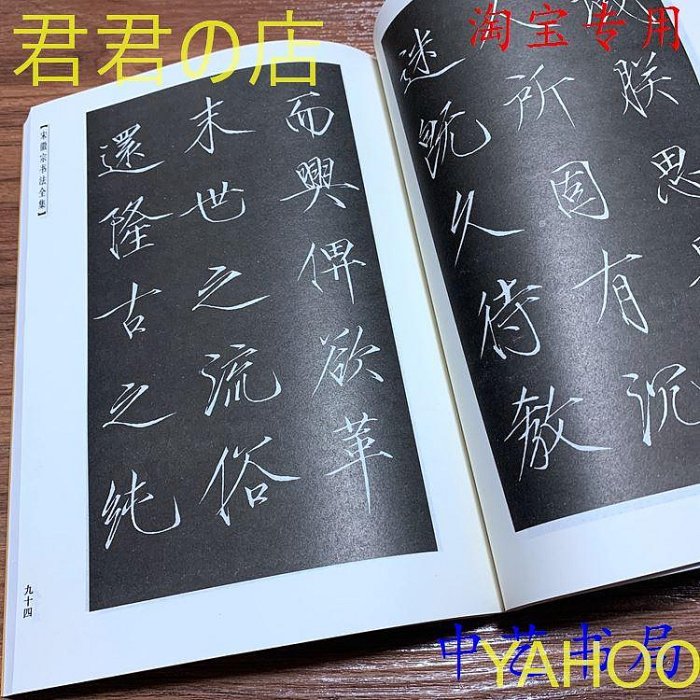 君君の店
淘宝专用
朕思
所固有沉
迷旣久待教
而興俾欲革
末世之流俗
還隆古之純
【宋徽宗书法全集】
九十四
中艺书局
YAHOO